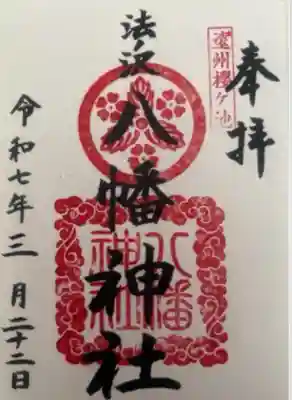 奉拝
遠州櫻ヶ池
法沢
八幡神社
八幡
神社
令和七年三月二十二日